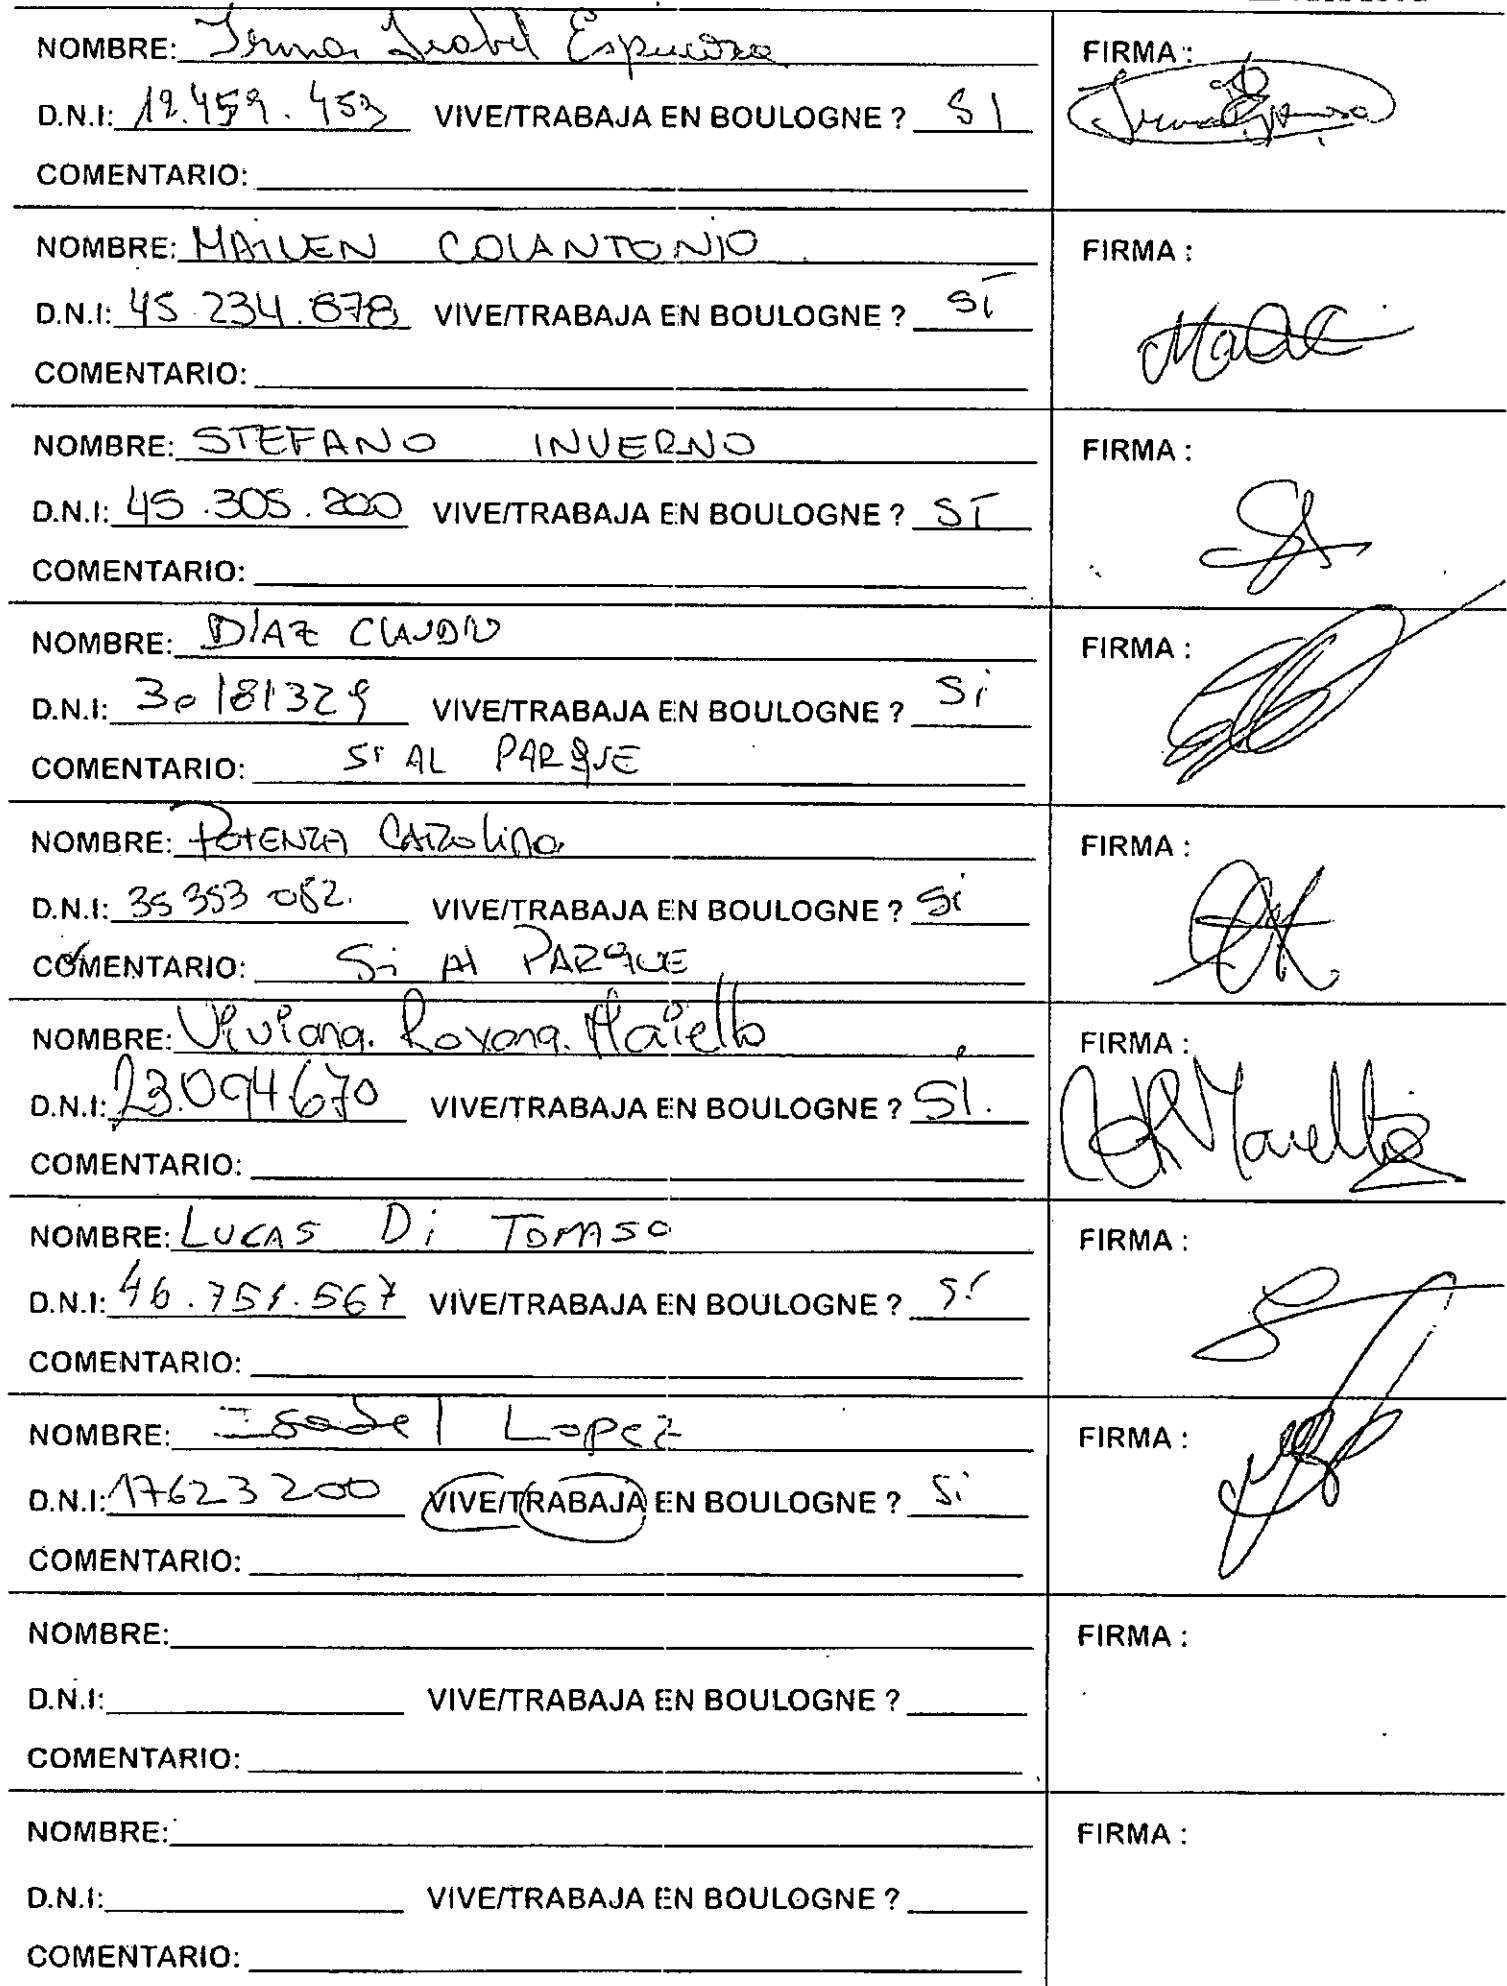 NOMBRE: Irma Isabel Espinosa FIRMA:
D.N.I: 12.459.453 VIVE/TRABAJA EN BOULOGNE ? SI
COMENTARIO:
NOMBRE: MAILEN COLANTONIO FIRMA :
D.N.I: 45.234.878 VIVE/TRABAJA EN BOULOGNE ? SÍ
COMENTARIO:
NOMBRE: STEFANO INVERNO FIRMA :
D.N.I: 45.305.200 VIVE/TRABAJA EN BOULOGNE ? SÍ
COMENTARIO:
NOMBRE: DIAZ CLAUDIO FIRMA :
D.N.I: 30181329 VIVE/TRABAJA EN BOULOGNE ? Si
COMENTARIO: Si AL PARQUE
NOMBRE: POTENZA CAROLINA FIRMA :
D.N.I: 35 353 082. VIVE/TRABAJA EN BOULOGNE ? Si
COMENTARIO: Si Al PARQUE
NOMBRE: Viviana. Roxana. Maiello FIRMA :
D.N.I: 23.094670 VIVE/TRABAJA EN BOULOGNE ? SI.
COMENTARIO: Maiello
NOMBRE: LUCAS Di TOMASO FIRMA :
D.N.I: 46.751.567 VIVE/TRABAJA EN BOULOGNE ? Si
COMENTARIO:
NOMBRE: Isabel Lopez FIRMA :
D.N.I: 17623200 VIVE/TRABAJA EN BOULOGNE ? Si
COMENTARIO:
NOMBRE: FIRMA :
D.N.I: VIVE/TRABAJA EN BOULOGNE ?
COMENTARIO:
NOMBRE: FIRMA :
D.N.I: VIVE/TRABAJA EN BOULOGNE ?
COMENTARIO: